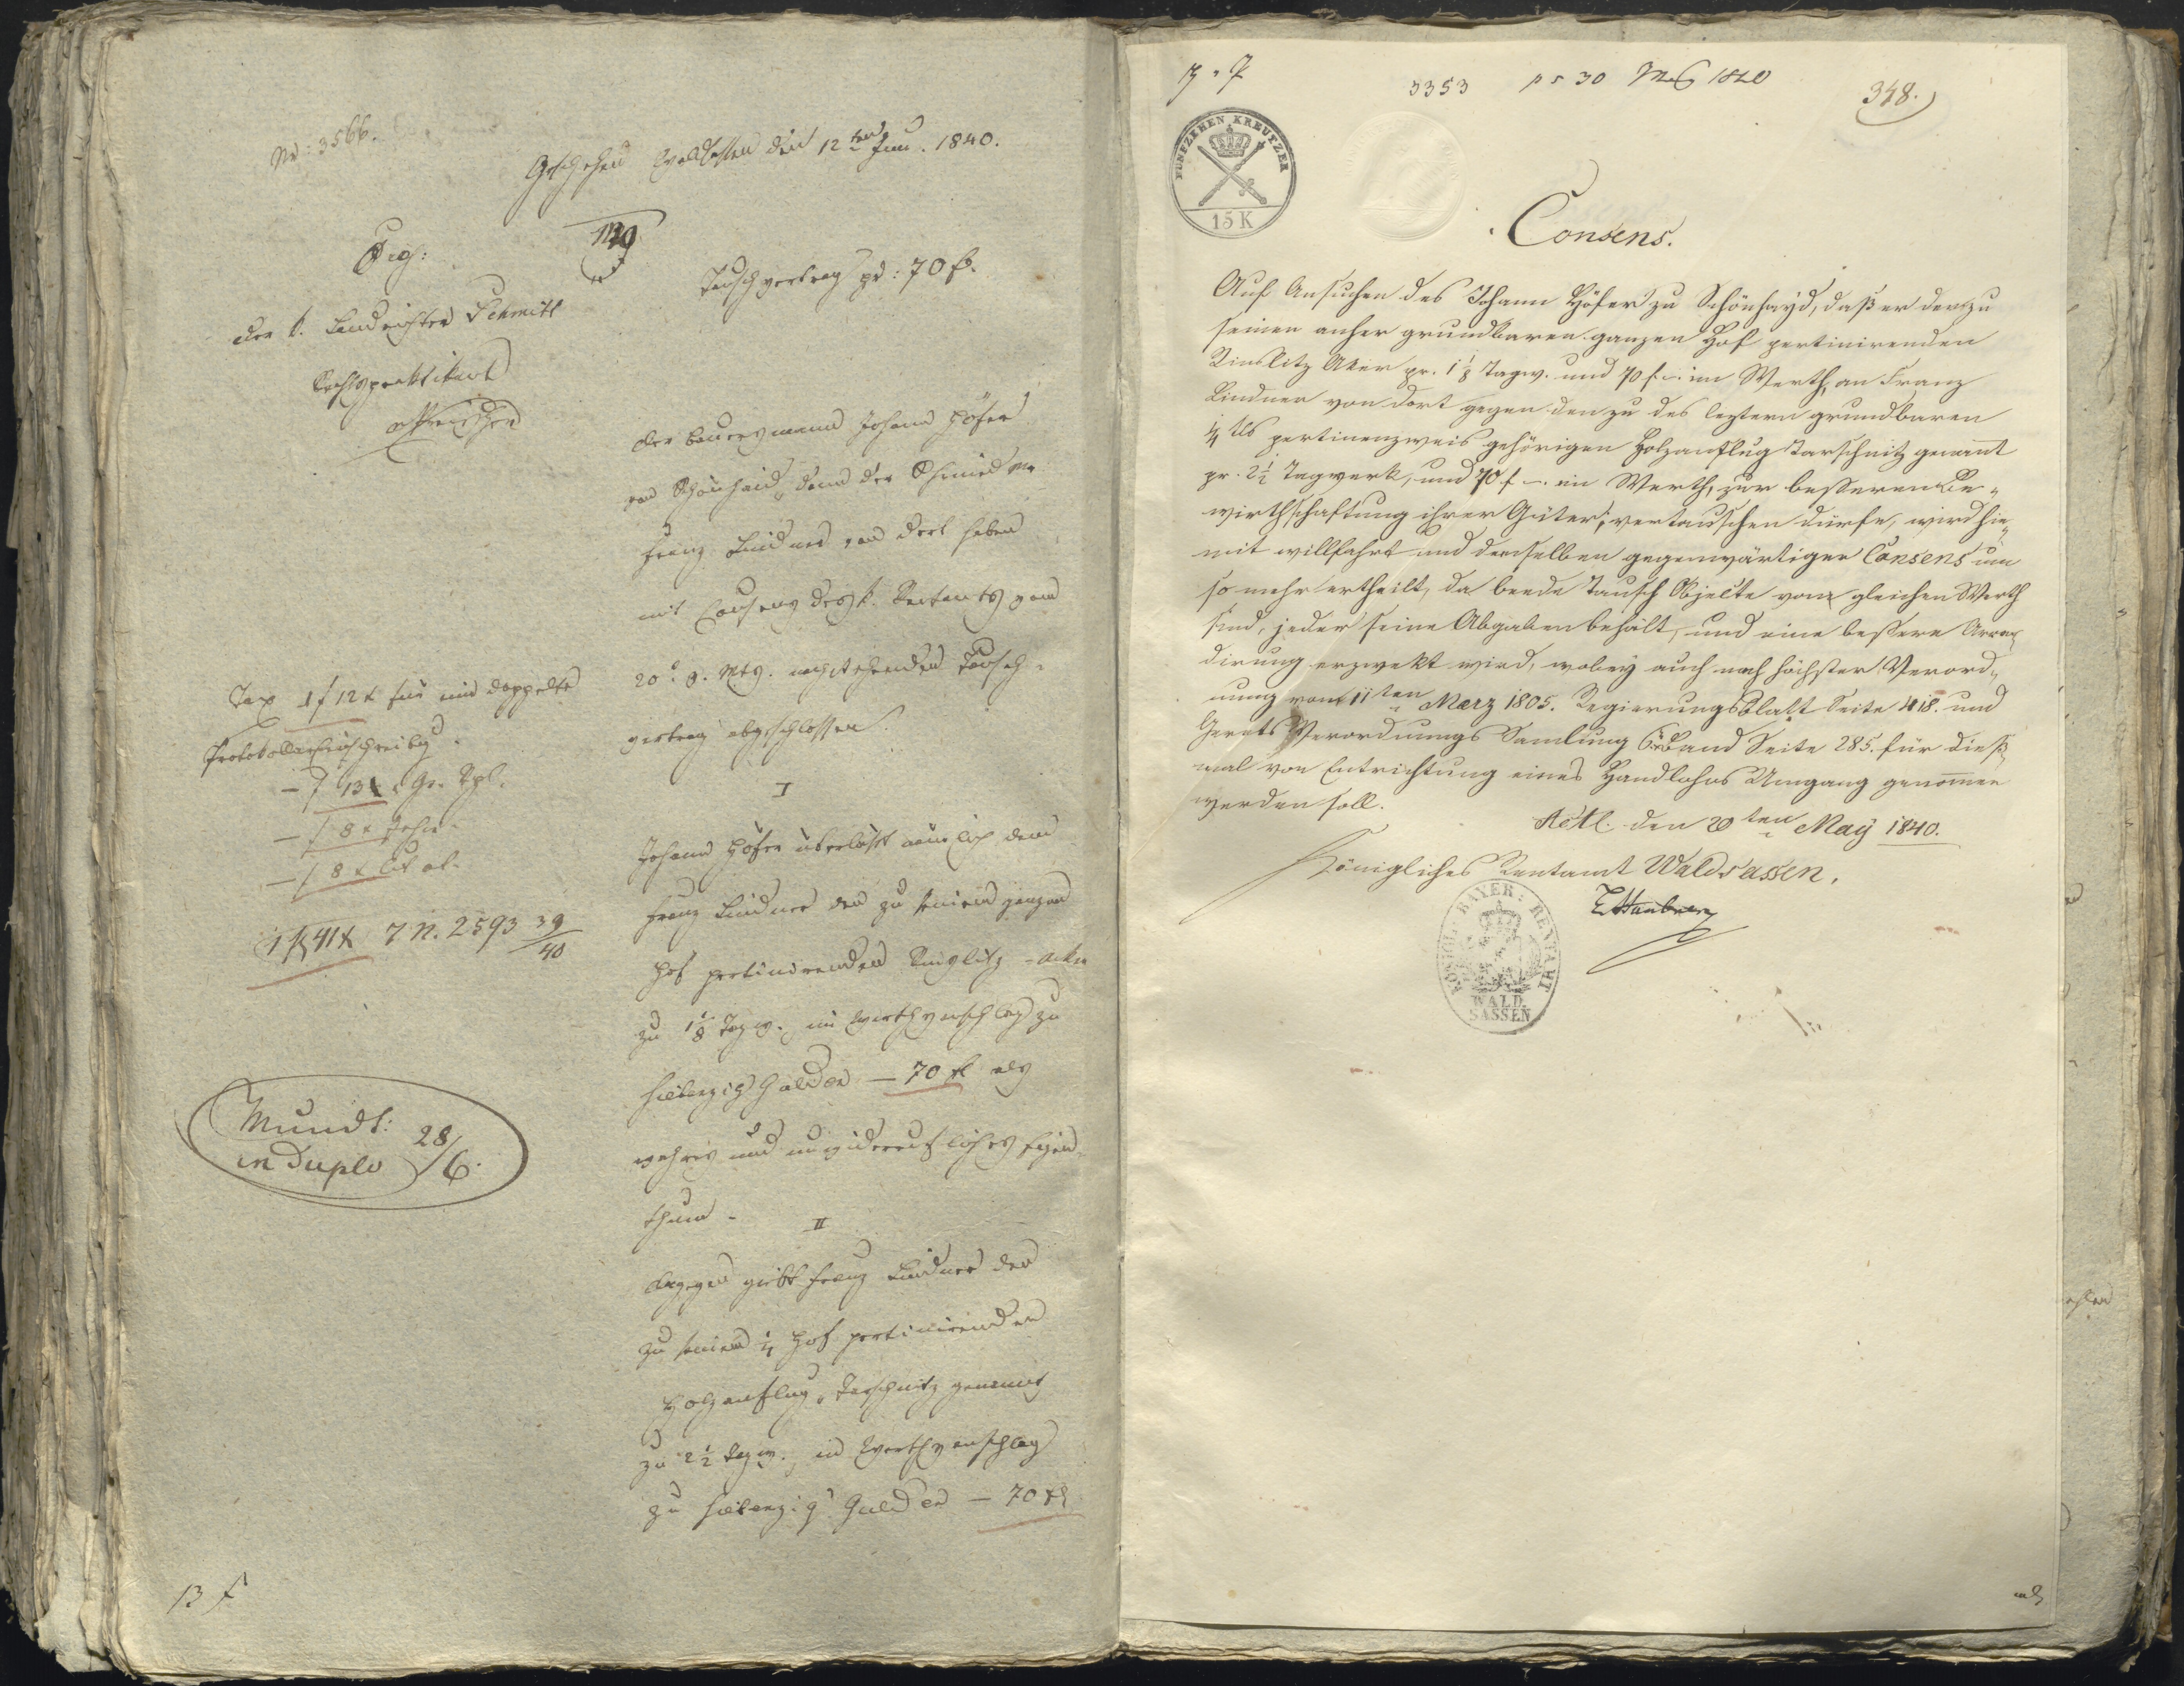 No: 3566.
Geschehen Waldsassen den 12ten Juni. 1840.
Geg:
der k. Landrichter Schmitt
Rechtspraktikant
Tauschvertrag pr: 70 fl.
der Bauersmann Johann Höfer
von Schönhaid, dann der Schmied
Franz Lindner von dort haben
mit Consens des k. Rentamts vom
20. v. Mts. nachstehenden Tausch-
vertrag abgeschlossen
I
Johann Höfer überläßt nämlich dem
Franz Lindner den zu seinem ganzen
Hof pertinirenden Rinslitz-Acker
zu 1 1/8 Tagw. im Werthsanschlag zu
siebenzig Gulden – 70 fl als
wahres und unwiderrufliches Eigen-
thum.
II
dagegen giebt Franz Lindner den
zu seinem 1/4 Hof pertinirenden
Holzanflug, Tarschnitz genannt
zu 2 1/2 Tagw., im Werthsanschlag
zu siebenzig Gulden – 70 fl
Tax 1 f 12 x für und doppelte
Protokollar
– f 13 x Gr. Spl.
– f 8 x
– f 8 x
1 fl 41 x 7 N. 2593 39/40
Mundt:
in duplo 28/6.
13 f
3353 ps 30 1840
348.
FUNFZEHEN KREUTZER
15 K
Consens.
Auf Ansuchen des Johann Höfer zu Schönhayd, daß er den zu
seinen anher grundbaren ganzen Hof pertinirenden
Rinslitz Aker pr. 1 1/8 Tagw. und 70 f. –. im Werth, an Franz
Lindner von dort gegen den zu des leztern grundbaren
1/4 tls pertinenzweis gehörigen Holzanflug Tarschnitz genannt
pr. 2 1/2 Tagwerk, und 70 f –. im Werth, zur besseren Be-
wirthschaftung ihrer Güter, vertauschen dürfe, wird hie-
mit willfahrt und denselben gegenwärtiger Consens um
so mehr ertheilt, da beede Tausch Objekte von gleichen Werth
sind, jeder seine Abgaben behält, und eine bessere Arron-
dirung erzwekt wird, wobey auch nach höchster Verord-
nung vom 11ten Maerz 1805. Regierungsblatt Seite 418. und
Gerets Verordnungs Samlung 6. Band Seite 285. für dieß-
mal von Entrichtung eines Handlohns Umgang genommen
werden soll.
Actl. den 20ten May 1840.
Königliches Rentamt Waldsassen.
KOENIGL: BAYER: RENTAMT
WALD.
SASSEN